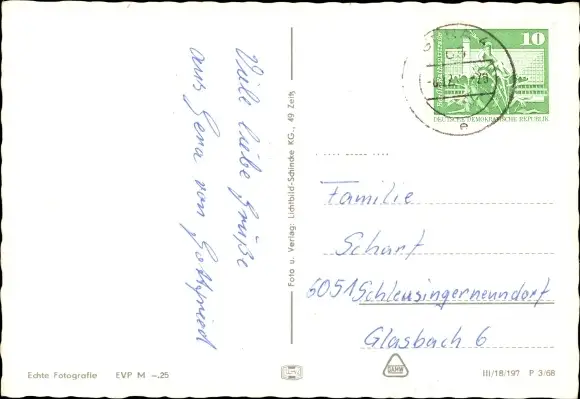 Viele liebe Grüße
aus Gera von Gottfried
Foto u. Verlag: Lichtbild-Schincke KG., 49 Zeitz
10
DEUTSCHE DEMOKRATISCHE REPUBLIK
e
Familie
Scharf
6051 Schleusingerneundorf
Glasbach 6
Echte Fotografie EVP M –.25
III/18/197 P 3/68